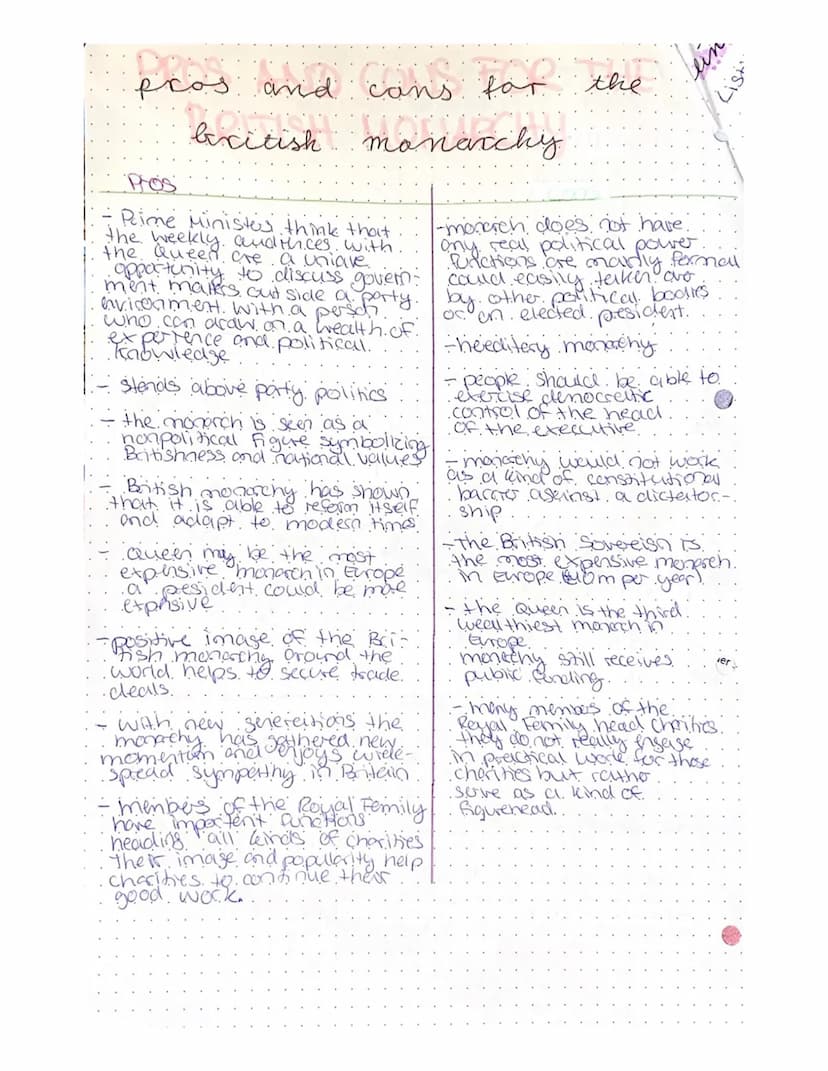 PROS AND CONS FOR THE
BRITISH MONARCHY
pros and cons for the
british monarchy
Pros
- Prime Ministes think that
the weekly audiences with
the Queen are a unique
opportunity to discuss govern-
ment matters outside a party
environment with a person
who can draw on a wealth of
experience and political
knowledge
- stands above party politics
- the monarch is seen as a
nonpolitical figure symbolizing
Britishness and national values
- British monarchy has shown
that it is able to reform itself
and adapt to modern times
- Queen may be the most
expensive monarch in Europe
a president could be more
expnsive
- positive image of the Bri-
tish monarchy around the
world helps to secure trade
deals.
- with new generations the
monarchy has gathered new
momentum and enjoys wide-
spread sympathy in Britain
- members of the Royal Family
have important functions
heading all kinds of charities
Their image and popularity help
charities to continue their
good work.
- monarch does not have
any real political power.
functions are mainly formal
could easily taken over
by other political bodies
or an elected president.
- hereditery monarchy
- people should be able to
exercise democratic
control of the head
of the executive
- monarchy would not work
as a kind of constitutional
barrier against a dictator-
ship
- The British Sovereign is
the most expensive monarch
in Europe 40m per year)
- the Queen is the third
wealthiest monarch in
Europe
monarchy still receives
public funding
- many members of the
Royal Family head charities.
they do not really engage
in practical work for those
charities but rather
serve as a kind of
figurehead.